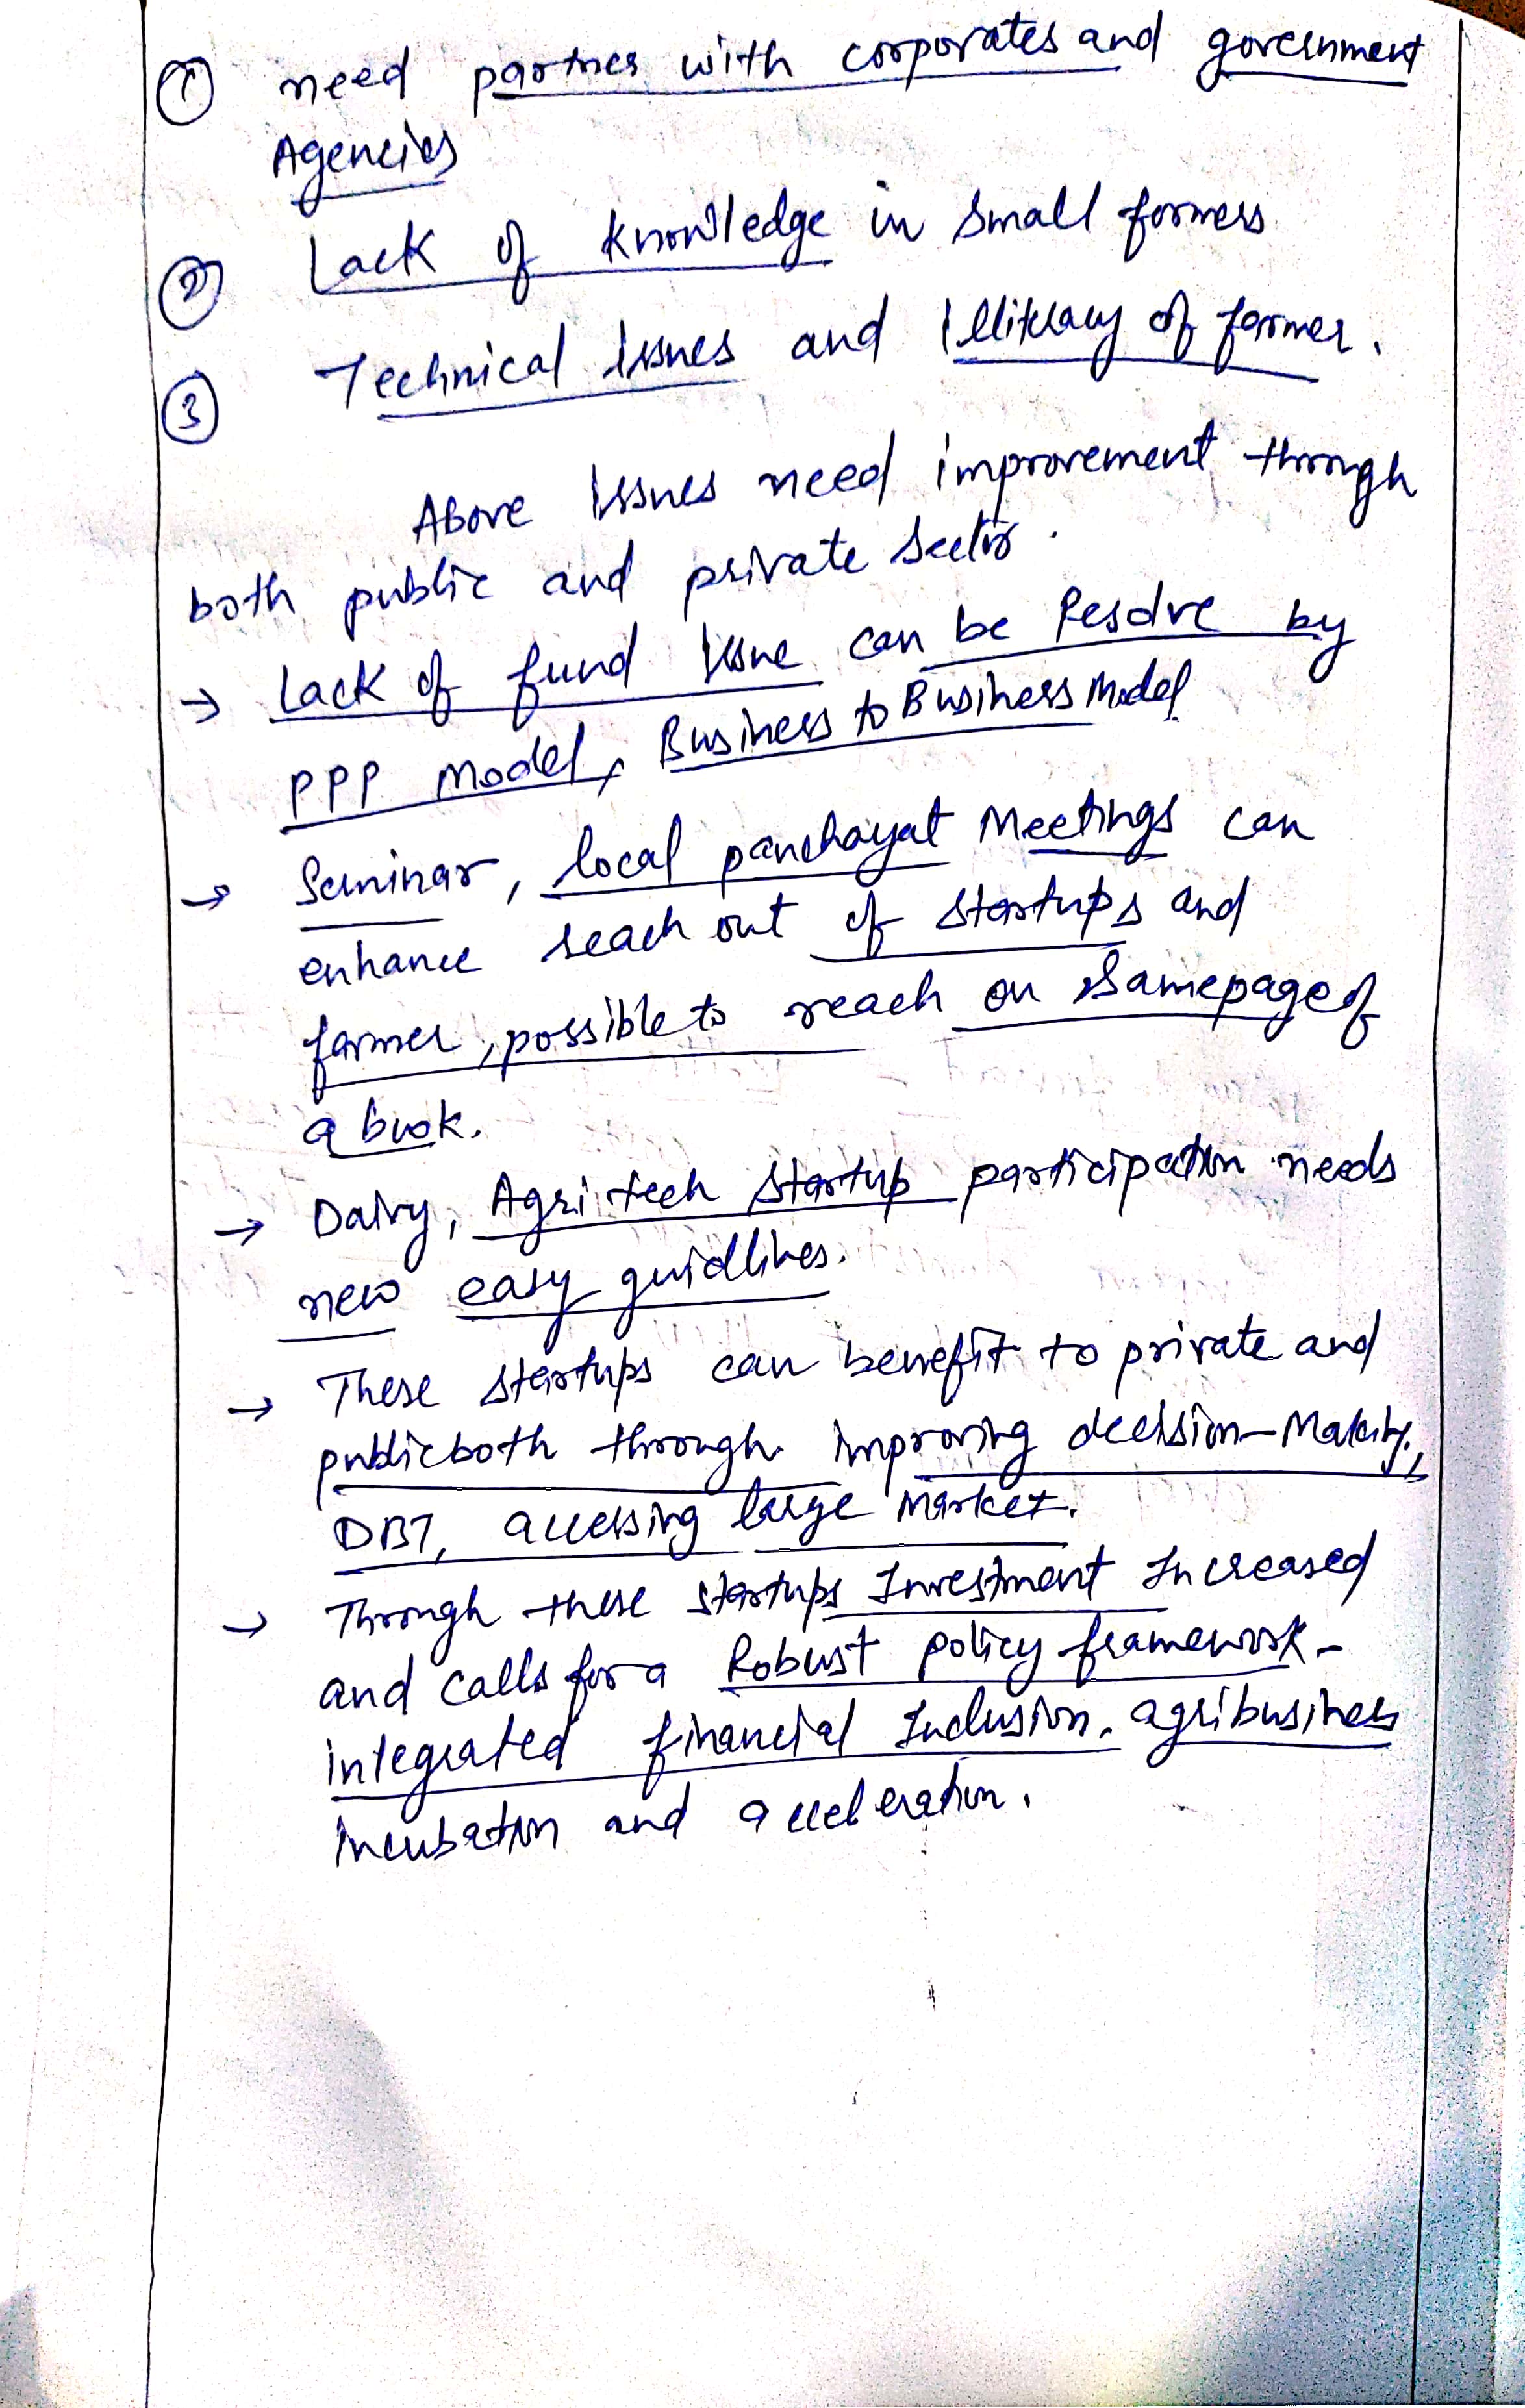 ① need partner with corporates and government
Agencies
② Lack of knowledge in small formers
③ Technical issues and Illiteracy of former.
Above Issues need improvement through
both public and private sector.
→ Lack of fund Issue can be Resolve by
PPP Model, Business to Business Model
→ Seminar, local panchayat Meetings can
enhance reach out of startups and
farmer, possible to reach on same page of
a book.
→ Dairy, Agri tech startup participation needs
new easy guidlines.
→ These startups can benefit to private and
public both through improving decision-Making,
DBT, accessing large Market.
→ Through these startups Investment Increased
and calls for a Robust policy framework -
integrated financial Inclusion, agribusiness
incubation and acceleration.